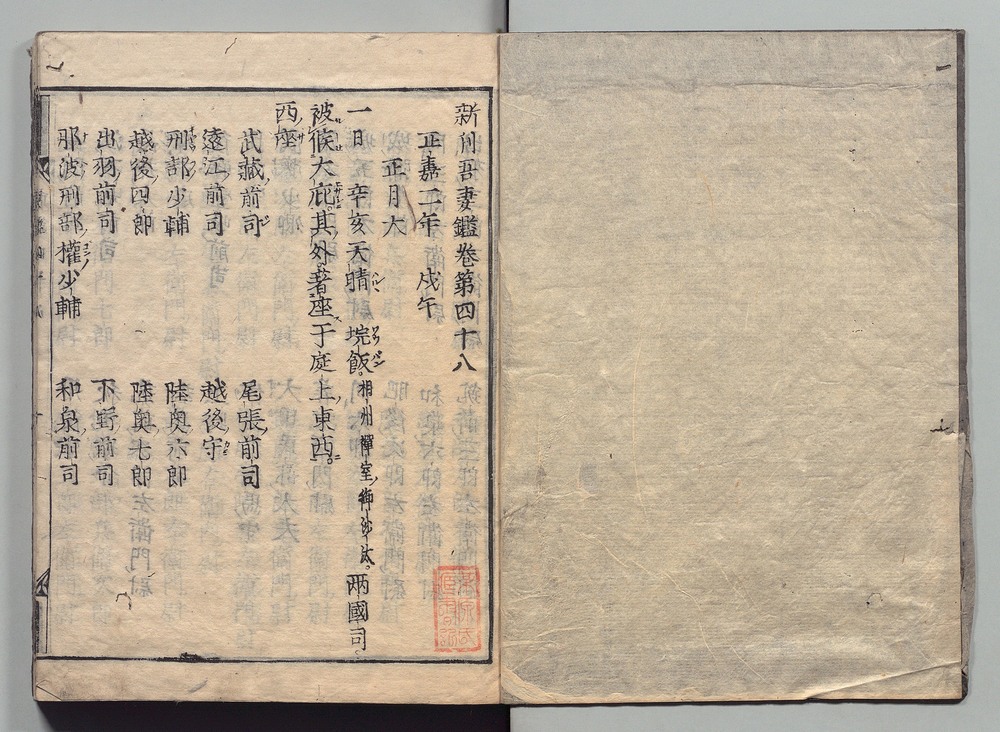 新刊吾妻鑑卷第四十八
正嘉二年 戊午
正月大
一日 辛亥天晴 埦飯 相州禪室御沙汰 兩國司
被候大庇其外著座于庭上東西
西座
武藏前司 尾張前司
遠江前司 越後守
刑部少輔 陸奧六郎
越後四郎 陸奧七郎
出羽前司 下野前司
那波刑部權少輔 和泉前司